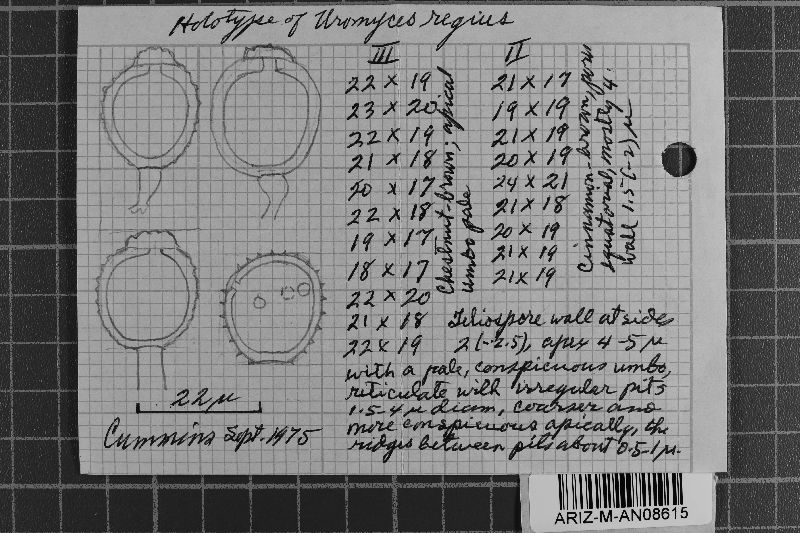 Holotype of Uromyces regius
III
22 x 19
23 x 20
22 x 19
21 x 18
20 x 17
22 x 18
19 x 17
18 x 17
22 x 20
21 x 18
22 x 19
Chestnut-brown; apical
umbo pale
II
21 x 17
19 x 19
21 x 19
20 x 19
24 x 21
21 x 18
20 x 19
21 x 19
21 x 19
Cinnamon-brown, pores
equatorial, mostly 4.
wall 1.5(-2) µ
Teliospore wall at sides
2(-2.5), apex 4-5 µ
with a pale, conspicuous umbo,
reticulate with irregular pits
1.5-4 µ diam, coarser and
more conspicuous apically, the
ridges between pits about 0.5-1 µ.
22 µ
Cummins Sept. 1975
ARIZ-M-AN08615